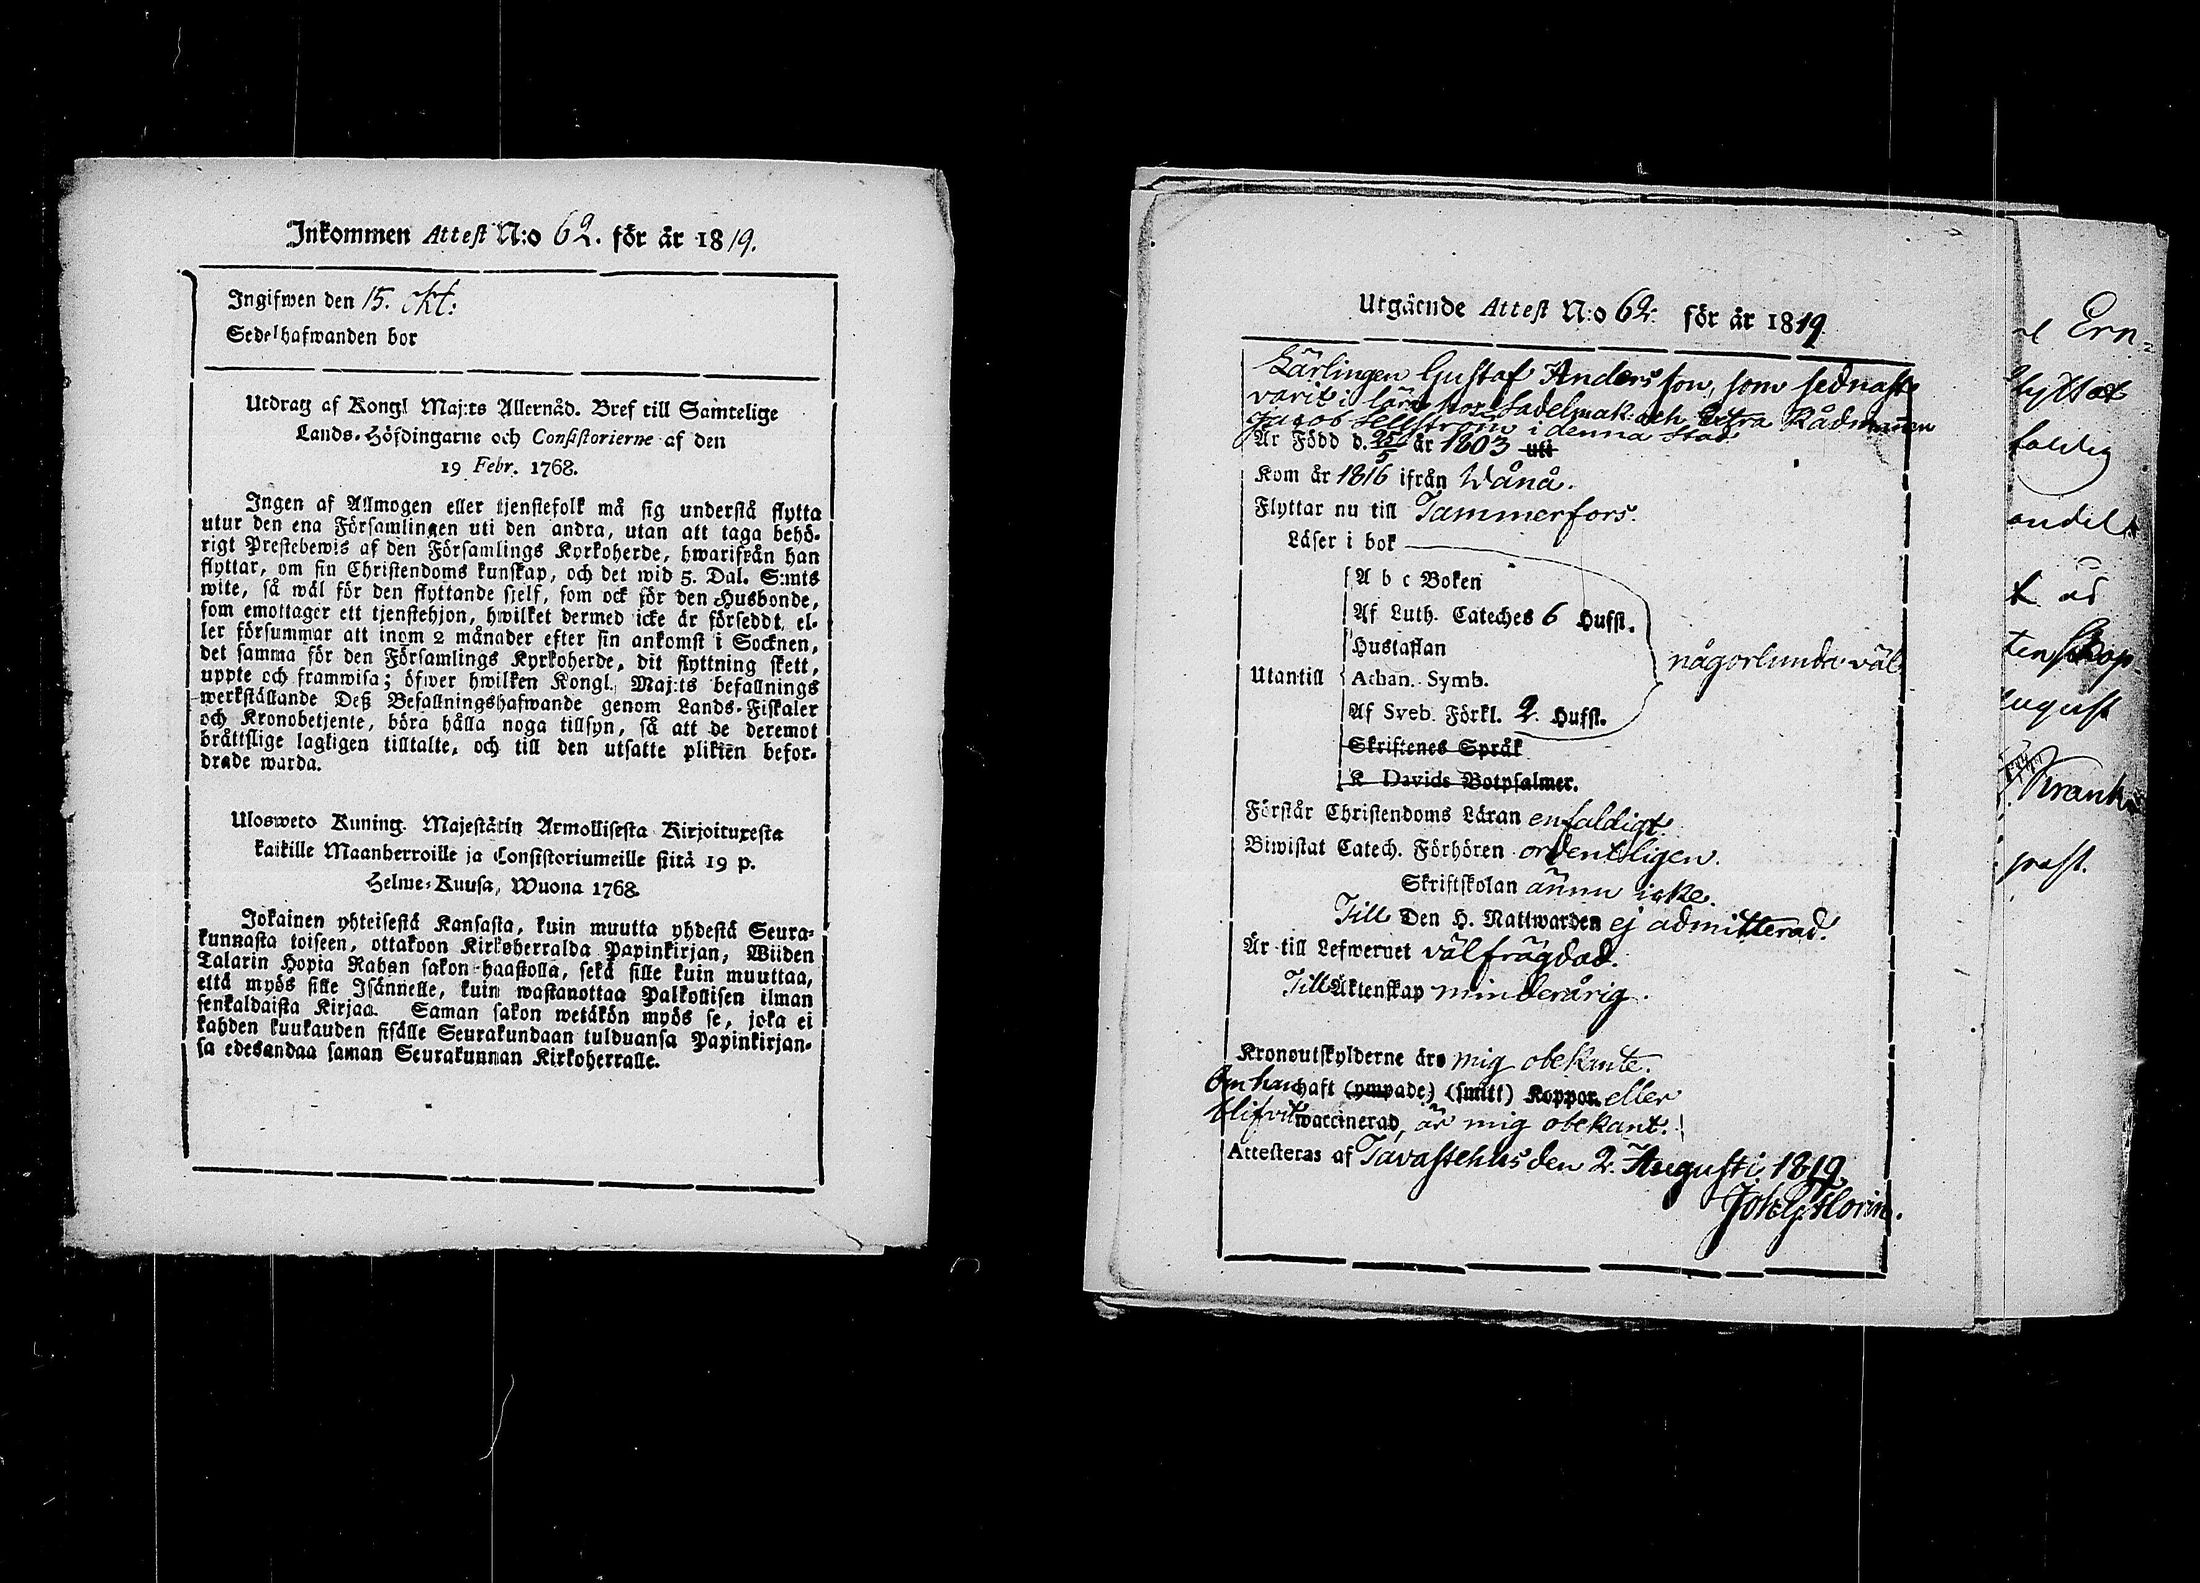 Inkommen Attest N:o 62. för år 1819.
Ingifwen den 15. Okt:
Sedelhafwanden bor
Utdrag af Kongl Maj:ts Allernåd. Bref till Samtelige
Lands-Höfdingarne och Consistorierne af den
19 Febr. 1768.
Ingen af Allmogen eller tjenstefolk må sig understå flytta
utur den ena Församlingen uti den andra, utan att taga behö-
rigt Prestebewis af den Församlings Kyrkoherde, hwarifrån han
flyttar, om sin Christendoms kunskap, och det wid 5. Dal. S:mts
wite, så wäl för den flyttande sjelf, som ock för den Husbonde,
som emottager ett tjenstehjon, hwilket dermed icke är förseddt, el-
ler försummar att inom 2 månader efter sin ankomst i Socknen,
det samma för den Församlings Kyrkoherde, dit flyttning skett,
uppte och framwisa; öfwer hwilken Kongl. Maj:ts befallnings
werkställande Deß Befallningshafwande genom Lands-Fiskaler
och Kronobetjente, böra hålla noga tillsyn, så att de deremot
bråttslige lagligen tilltalte, och till den utsatte plikten befor-
drade warda.
Ulosweto Kuning. Majestätin Armollisesta Kirjoituxesta
kaikille Maanherroille ja Consistoriumeille siitä 19 p.
Helme-Kuusa, Wuona 1768.
Jokainen yhteisestä Kansasta, kuin muutta yhdestä Seura-
kunnasta toiseen, ottakoon Kirkoherralda Papinkirjan, Wiiden
Talarin Hopia Rahan sakon haastolla, sekä sille kuin muuttaa,
että myös sille Isännelle, kuin wastanottaa Palkollisen ilman
senkaldaista Kirjaa. Saman sakon wetäkön myös se, joka ei
kahden kuukauden sisälle Seurakundaan tulduansa Papinkirjan-
sa edesandaa saman Seurakunnan Kirkoherralle.
Utgående Attest N:o 62. för år 1819
Lärlingen Gustaf Andersson, som sednast
varit i lära hos Sadelmak: och Extra Rådmannen
Jacob Hellström i denna Stad
Är Född d. 25/5 år 1803 uti
Kom år 1816 ifrån Wånå.
Flyttar nu till Tammerfors.
Läser i bok
A b c Boken
Af Luth. Cateches 6 Hufst.
Hustaflan
någorlunda väl
Utantill Athan. Symb.
Af Sveb. Förkl. 2. Hufst.
Skriftenes Språk
K Davids Botpsalmer.
Förstår Christendoms Läran enfaldigt.
Biwistat Catech. Förhören ordentligen.
Skriftskolan ännu icke.
Till Den H. Nattwarden ej admitterad.
Är till Lefwernet välfrägdad.
Till Äktenskap minderårig.
Kronoutskylderne äro mig obekante.
Om han haft (ympade) (smitt) Koppor eller
blifvit waccinerad, är mig obekant.
Attesteras af Tavastehus den 2. Augusti 1819
Joh. G. Florin.
Ern-
flyttat
faldig
andel
t ad
tenskap
August
Krank
past.